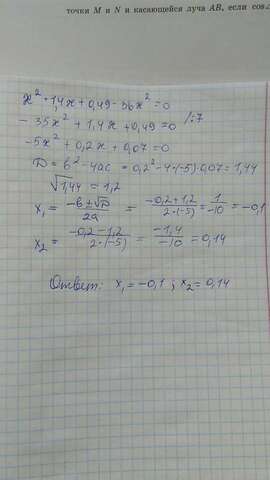 точки M и N и касающейся луча AB, если cos
x² · 1,4x + 0,49 - 36x² = 0
- 35x² + 1,4x + 0,49 = 0 /:7
-5x² + 0,2x + 0,07 = 0
D = b² - 4ac = 0,2² - 4·(-5)·0,07 = 1,44
√1,44 = 1,2
x₁ = (-b ± √D)/2a = (-0,2 + 1,2)/(2·(-5)) = 1/-10 = -0,1
x₂ = (-0,2 - 1,2)/(2·(-5)) = -1,4/-10 = 0,14
Ответ: x₁ = -0,1 ; x₂ = 0,14